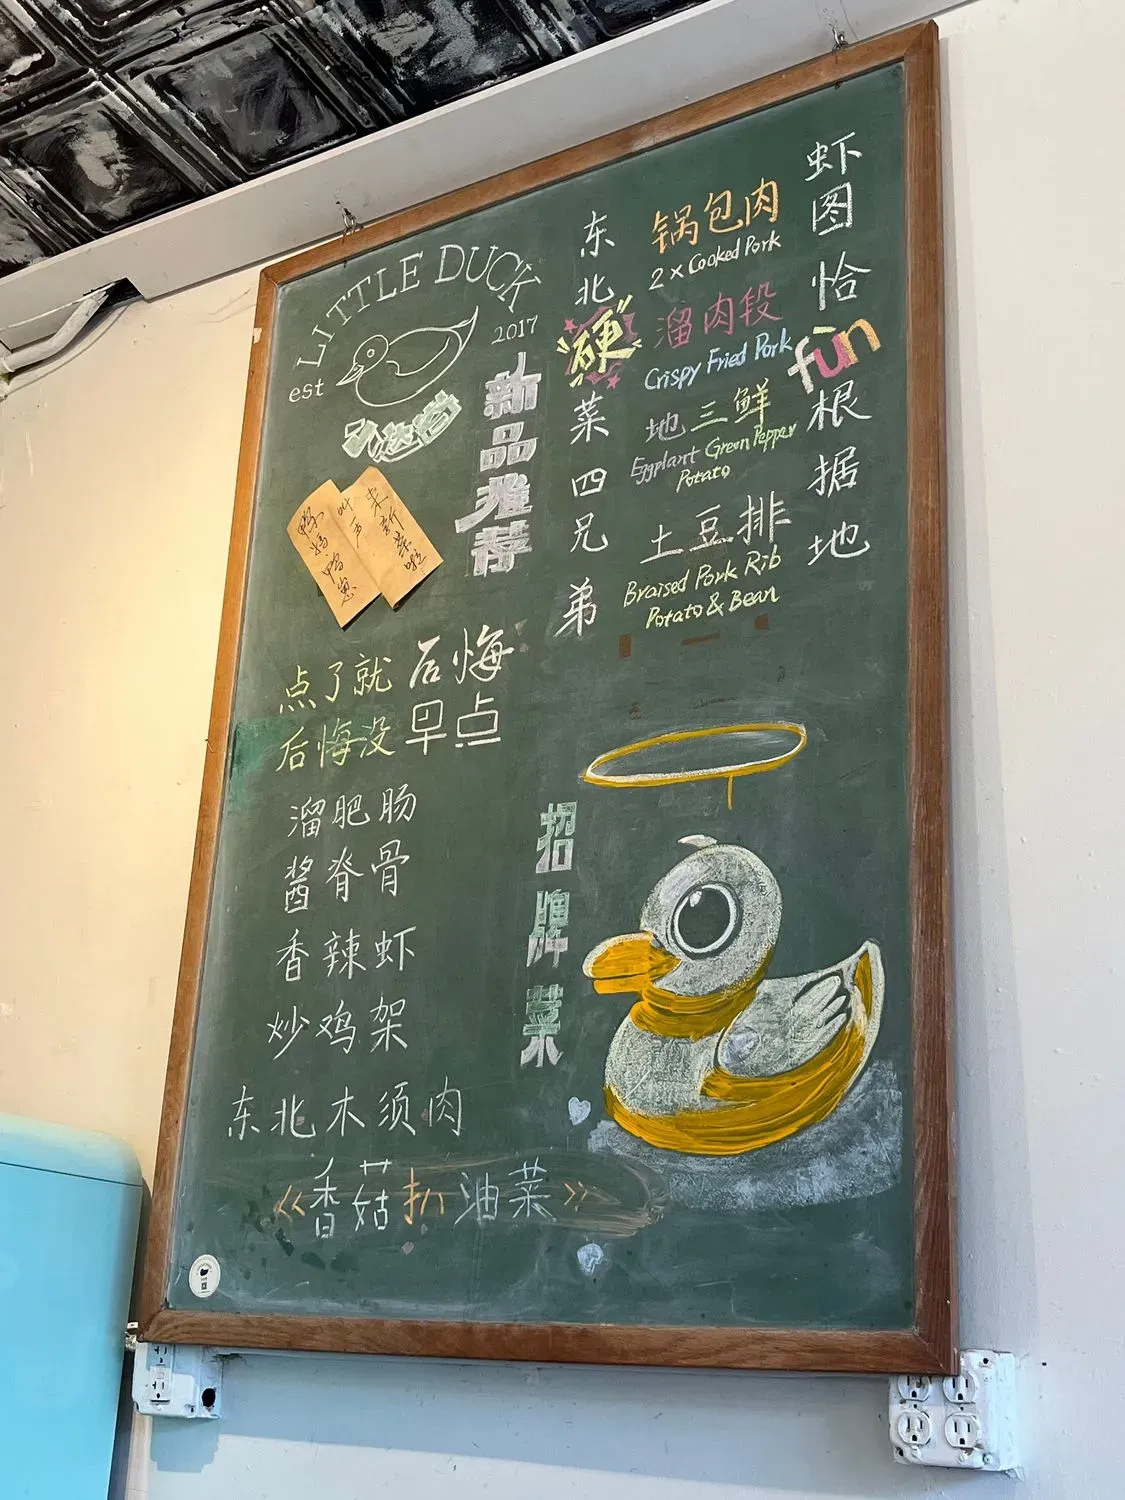 LITTLE DUCK
est
2017
新品推荐
鸭妈
叫一声
来新菜啦
鸭崽
东北硬菜四兄弟
锅包肉
2 x Cooked Pork
溜肉段
Crispy Fried Pork
地三鲜
Eggplant Green Pepper
Potato
土豆排
Braised Pork Rib
Potato & Bean
虾图恰fun根据地
点了就后悔
后悔没早点
招牌菜
溜肥肠
酱脊骨
香辣虾
炒鸡架
东北木须肉
《香菇扒油菜》